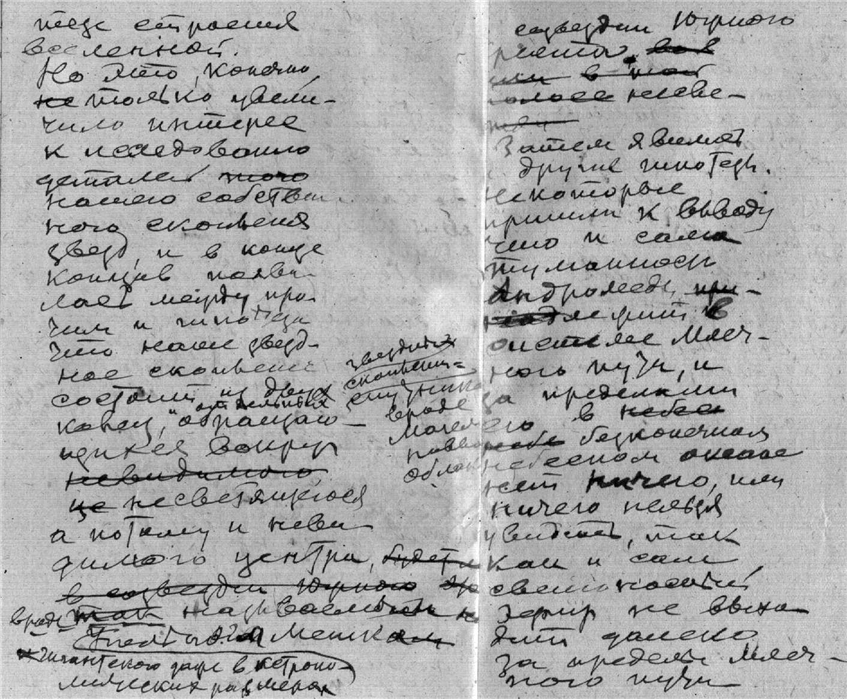 строения
вселенной.
Но это, конечно
не только увели-
чило интерес
к исследованию
деталей
нашего собствен-
ного скопления
звезд, и в конце
концов появи-
лась между про-
чим и гипотеза
что наше звезд-
ное скопление
состоит из двух
колец, отдельных обращаю-
щихся вокруг
невидимого
несветящегося
а потому и неви-
димого центра,
в созвездии Южного
вроде так называемых
Мешка
гигантского в астроно-
мических размерах
звездных
скоплений-
спутников
вроде
Магелла-
новых
облак
созвездии Южного
Креста,
в той
полосе несве-
Затем явились
другие гипотезы.
Некоторые
пришли к выводу
что и сама
туманность
Андромеды при-
надлежит в
системе Млеч-
ного пути, и
за пределами
его в небес
бесконечном
небесном океане
нет ничего, или
ничего нельзя
увидеть, так
как и сам
светоносный
эфир не выхо-
дит далеко
за пределы Млеч-
ного пути